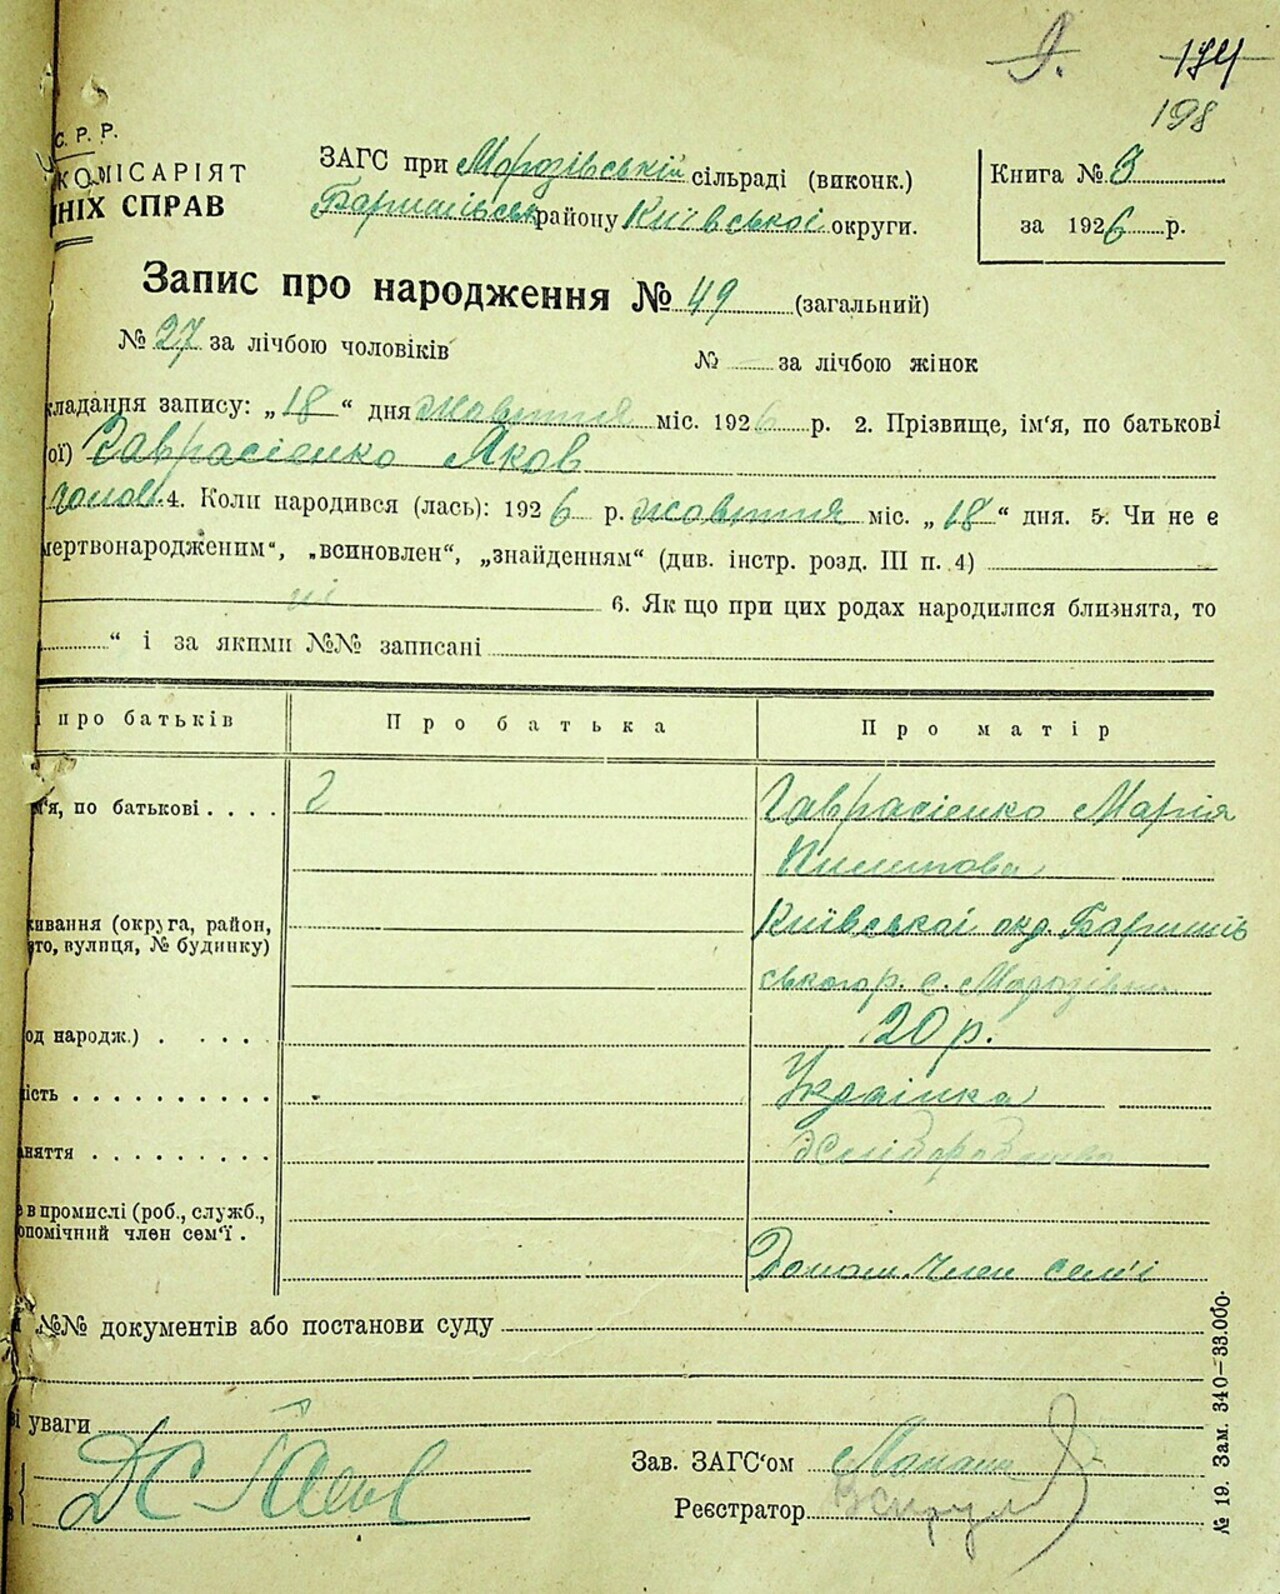 9. 194
198
С. Р. Р.
КОМІСАРІЯТ
НІХ СПРАВ
ЗАГС при Морозівській сільраді (виконк.)
Баришівськ району Київської округи.
Книга № 3
за 1926 р.
Запис про народження № 49 (загальний)
№ 27 за лічбою чоловіків № за лічбою жінок
кладання запису: „18“ дня Жовтня міс. 1926 р. 2. Прізвище, ім‘я, по батькові
ої) Гаврасієнко Яков
чолов. 4. Коли народився (лась): 1926 р. жовтня міс. „18“ дня. 5. Чи не є
мертвонародженим“, „всиновлен“, „знайденням“ (див. інстр. розд. III п. 4)
ні 6. Як що при цих родах народилися близнята, то
“ і за якими №№ записані
і про батьків Про батька Про матір
м‘я, по батькові . . . . Гаврасієнко Марія
живання (округа, район, Київської окр. Баришів
то, вулиця, № будинку)
ського р. с. Морозівки
од народж.) . . . . . 20 р.
ність . . . . . . . . . . Українка
няття . . . . . . . . . Хліборобство
е в промислі (роб., служб.,
опомічний член сем‘ї .
Допом. член сем'ї
№№ документів або постанови суду
ві уваги
Зав. ЗАГС‘ом
Реєстратор
№ 19. Зам. 340—33.000.